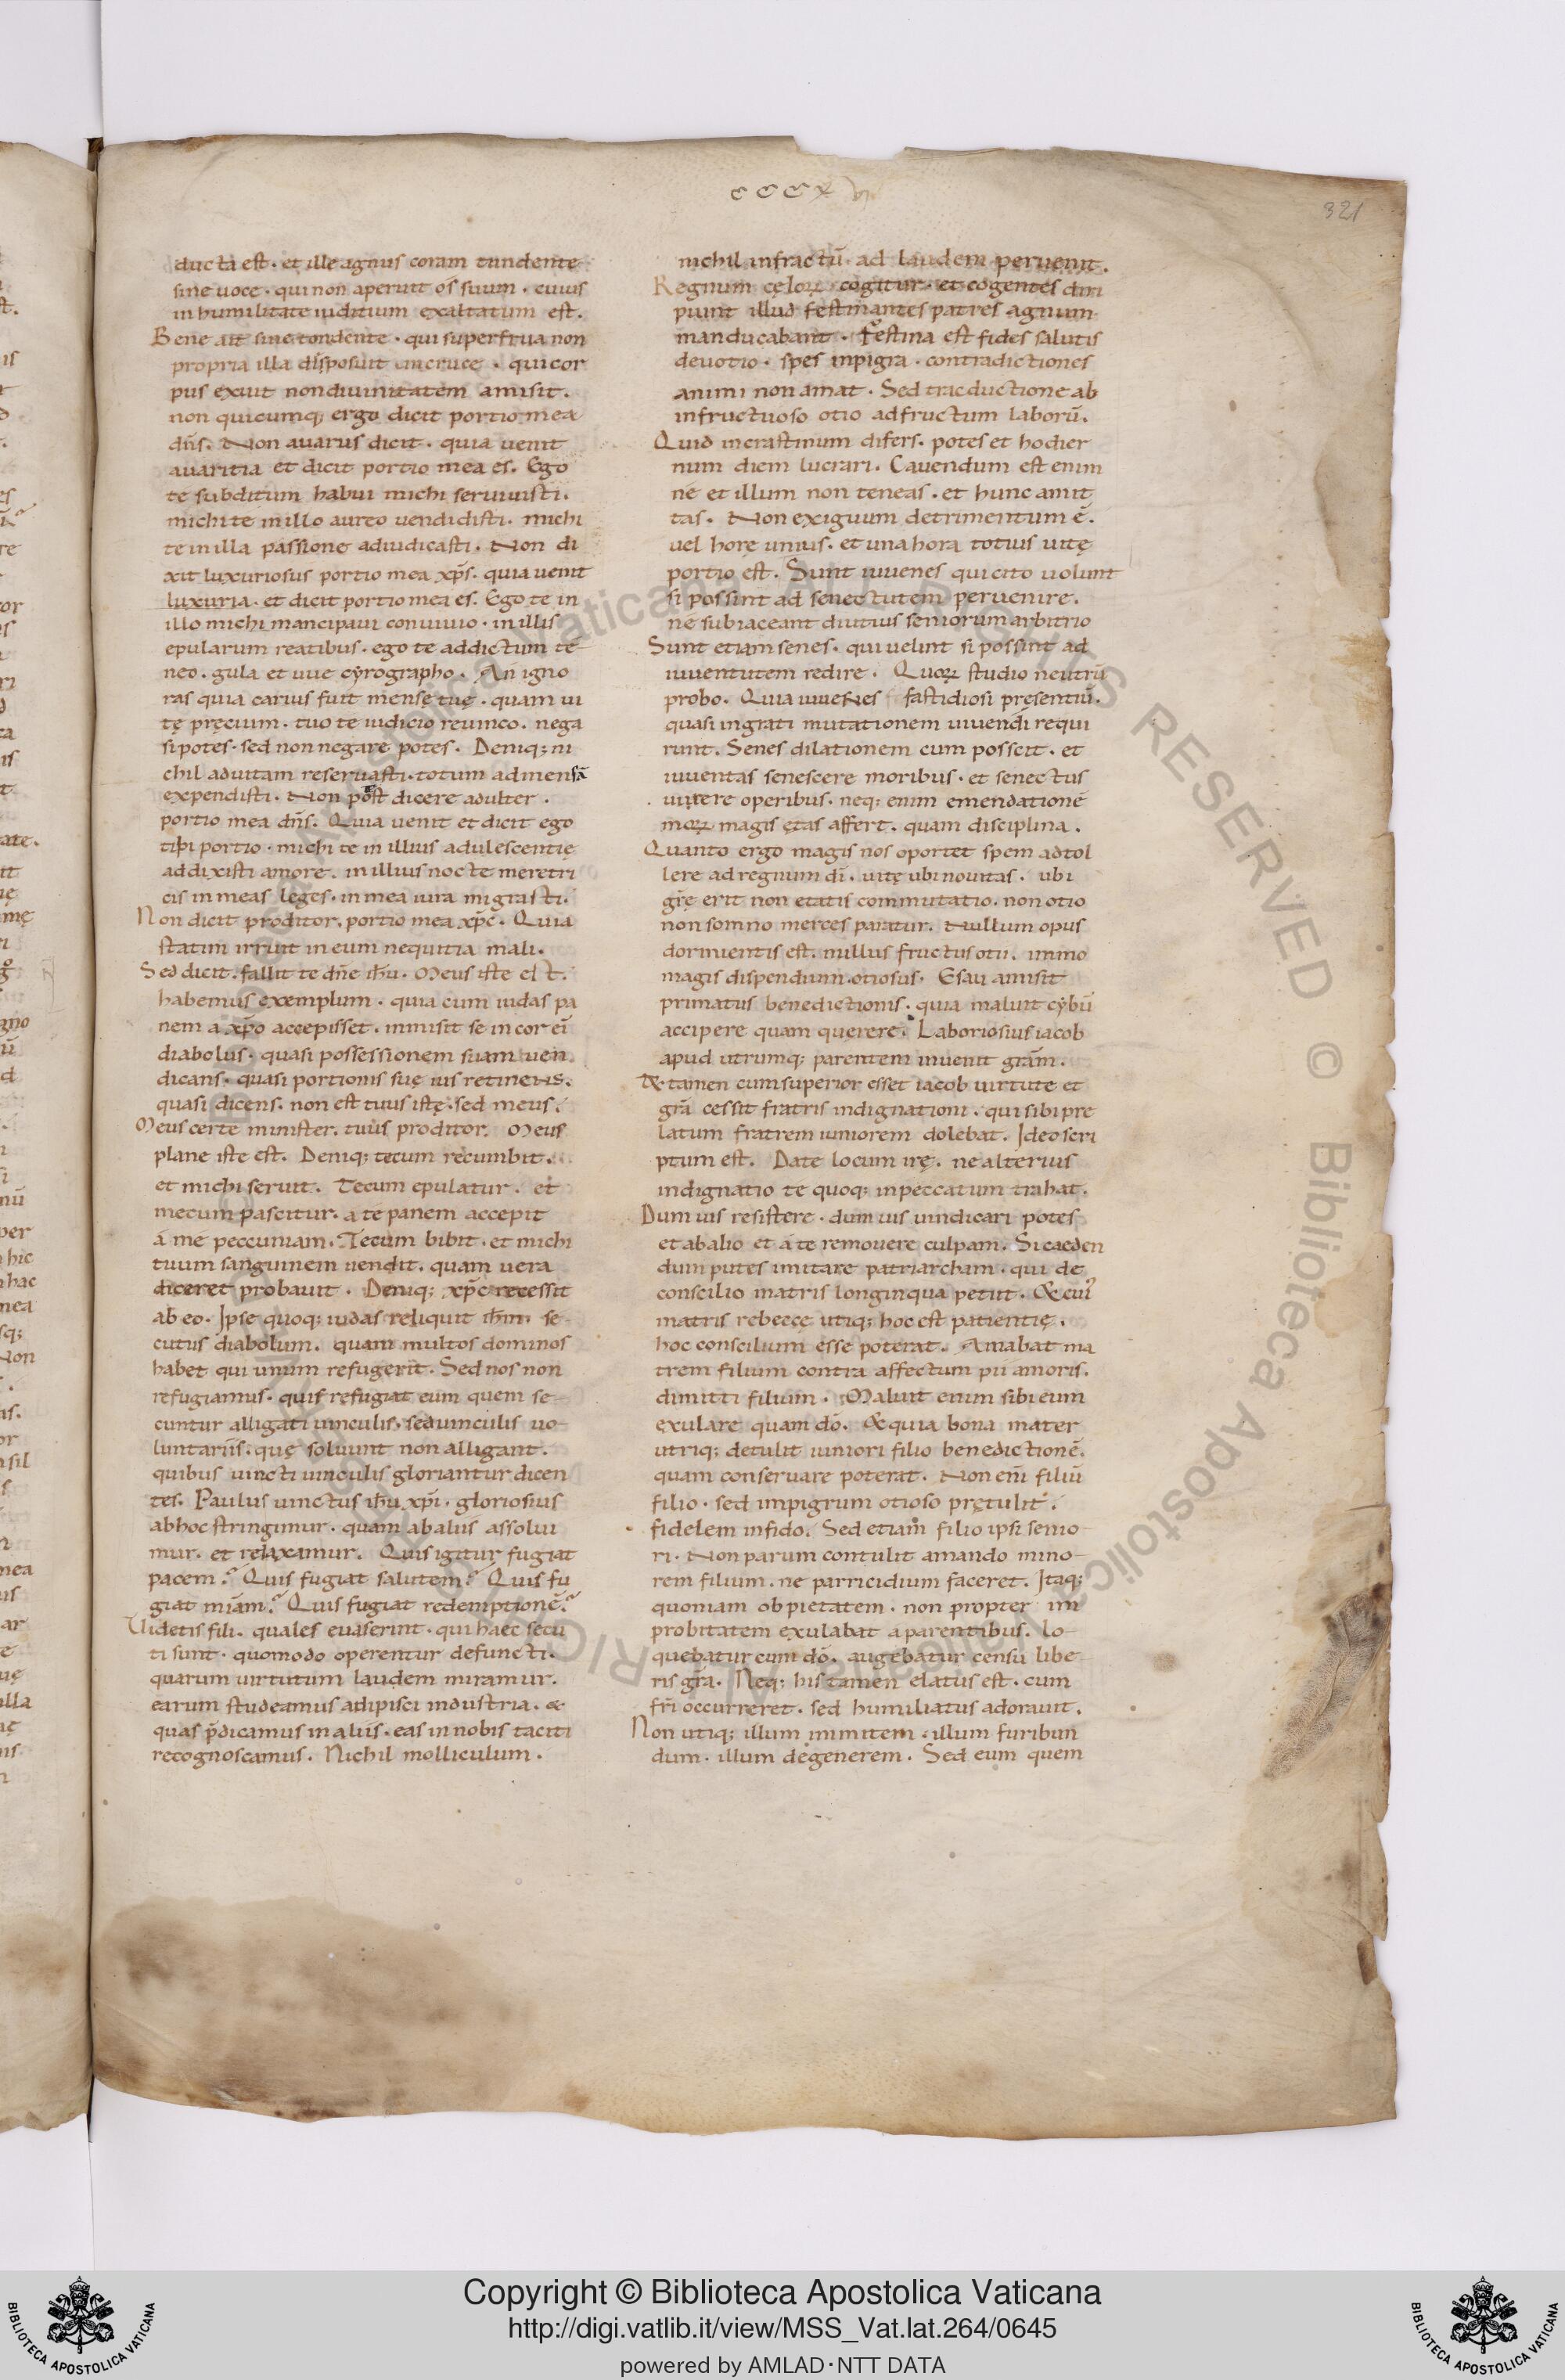 ccccx vi
321
ducta est. et ille agnus coram tundente
sine uoce. qui non aperuit os suum. cuius
in humilitate iuditium exaltatum est.
Bene ait sine tondente. qui superflua non
propria illa disposuit in cruce. qui cor
pus exuit non diuinitatem amisit.
non quicumq; ergo dicit portio mea
dñs. Non auarus dicit. quia uenit
auaritia et dicit portio mea es. Ego
te subditum habui michi seruiuisti.
michi te in illo aureo uendidisti. michi
te in illa passione adiudicasti. Non di
xit luxuriosus portio mea xp̄s. quia uenit
luxuria. et dicit portio mea es. Ego te in
illo michi mancipaui conuiuio. in illis
epularum reatibus. ego te addictum te
neo. gula et tue cyrographo. An igno
ras quia carius fuit mensę tuę. quam ui
tę pręcium. tuo te iudicio reuinco. nega
si potes. sed non negare potes. Deniq; ni
chil ad uitam reseruasti. totum ad mensā
expendisti. Non post dicere adulter.
portio mea dñs. Quia uenit et dicit ego
tibi portio. michi te in illius adulescentię
addixisti amore. in illius nocte meretri
cis in meas leges. in mea iura migrasti.
Non dicit proditor. portio mea xp̄c. Quia
statim irruit in eum nequitia mali.
Sed dicit. fallit te dñe ih̄u. Meus iste est.
habemus exemplum. quia cum iudas pa
nem a xp̄o accepisset. inmisit se in cor ei
diabolus. quasi possessionem suam uen
dicans. quasi portionis suę ius retinens.
quasi dicens. non est tuus istę. sed meus.
Meus certe minister. tuus proditor. Meus
plane iste est. Deniq; tecum recumbit.
et michi seruit. Tecum epulatur. et
mecum pascitur. a te panem accepit
a me peccuniam. Tecum bibit. et michi
tuum sanguinem uendit. quam uera
diceret probauit. Deniq; xp̄c recessit
ab eo. Ipse quoq; iudas reliquit ih̄m. se-
cutus diabolum. quam multos dominos
habet qui unum refugerit. Sed nos non
refugiamus. quis refugiat eum quem se-
cuntur alligati uinculis. sed uinculis uo-
luntariis. quę soluunt non alligant.
quibus uincti uinculis gloriantur dicen
tes. Paulus uinctus ih̄u xp̄i. gloriosius
ab hoc stringimur. quam ab aliis assolui
mur. et relaxamur. Quis igitur fugiat
pacem? Quis fugiat salutem? Quis fu
giat miām? Quis fugiat redemptionē?
Uidetis fili. quales euaserint. qui haec secu
ti sunt. quomodo operentur defuncti.
quarum uirtutum laudem miramur.
earum studeamus adipisci industria. &
quas p̄dicamus in aliis. eas in nobis taciti
recognoscamus. Nichil molliculum.
nichil infractū. ad laudem peruenit.
Regnum cęlorꝝ cogitur. et cogentes diri
piunt illud festinantes patres agnum
manducabant. Festina est fides salutis
deuotio. spes inpigra. contradictiones
animi non amat. Sed traeductione ab
infructuoso otio ad fructum laborū.
Quid in crastinum difers. potes et hodier
num diem lucrari. Cauendum est enim
ne et illum non teneas. et hunc amit
tas. Non exiguum detrimentum ē.
uel horę unius. et una hora totius uitę
portio est. Sunt iuuenes qui cito uolunt
si possint ad senectutem peruenire.
ne subiaceant diutius seniorum arbitrio
Sunt etiam senes. qui uelint si possint ad
iuuentutem redire. Quorꝝ studio neutrū
probo. Quia iuuenes fastidiosi pręsentiū.
quasi ingrati mutationem uiuendi requi
runt. Senes dilationem cum possit. et
iuuentas senescere moribus. et senectus
uirere operibus. neq; enim emendationē
morꝝ magis ętas affert. quam disciplina.
Quanto ergo magis nos oportet spem adtol
lere ad regnum dī. uitę ubi nouitas. ubi
gr̄ę erit non etatis commutatio. non otio
non somno merces paratur. Nullum opus
dormientis est. nullus fructus otii. immo
magis dispendium otiosus. Esau amisit
primatus benedictionis. quia maluit cybū
accipere quam querere. Laboriosius iacob
apud utrumq; parentem inuenit grām.
& tamen cum superior esset iacob uirtute et
grā cessit fratris indignationi. qui sibi pre
latum fratrem iuniorem dolebat. Ideo scri
ptum est. Date locum irę. ne alterius
indignatio te quoq; in peccatum trahat.
Dum uis resistere. dum uis uindicari potes
et ab alio et a te remouere culpam. Si caeden
dum putes imitare patriarcham. qui de
conscilio matris longinqua petiit. & cui'
matris rebecce utiq; hoc est patientię.
hoc conscilium esse poterat. Amabat ma
trem filium contra affectum pii amoris.
dimitti filium. Maluit enim sibi eum
exulare quam dō. & quia bona mater
utriq; detulit iuniori filio benedictionē.
quam conseruare poterat. Non eni filiū
filio. sed impigrum otioso prętulit.
fidelem infido. Sed etiam filio ipsi senio-
ri. Non parum contulit amando mino-
rem filium. ne parricidium faceret. Itaq;
quoniam ob pietatem. non propter im
probitatem exulabat a parentibus. lo-
quebatur cum dō. augebatur censu libe-
ris grā. Neq; his tamen elatus est. cum
frī occurreret. sed humiliatus adorauit.
Non utiq; illum inmitem. illum furibun
dum. illum degenerem. Sed eum quem
Copyright © Biblioteca Apostolica Vaticana
http://digi.vatlib.it/view/MSS_Vat.lat.264/0645
powered by AMLAD·NTT DATA
BIBLIOTECA APOSTOLICA VATICANA
BIBLIOTECA APOSTOLICA VATICANA